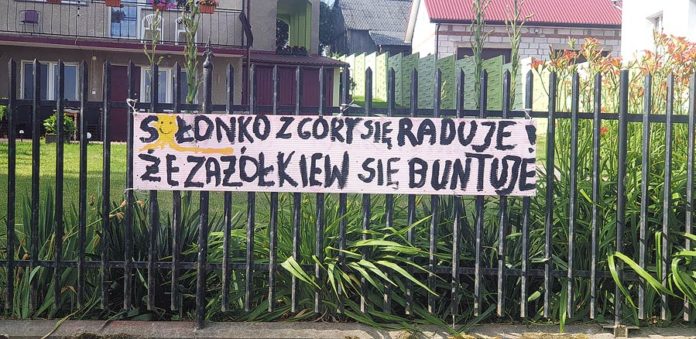 SŁONKO Z GÓRY SIĘ RADUJE!
ŻE ZAŻÓŁKIEW SIĘ BUNTUJE